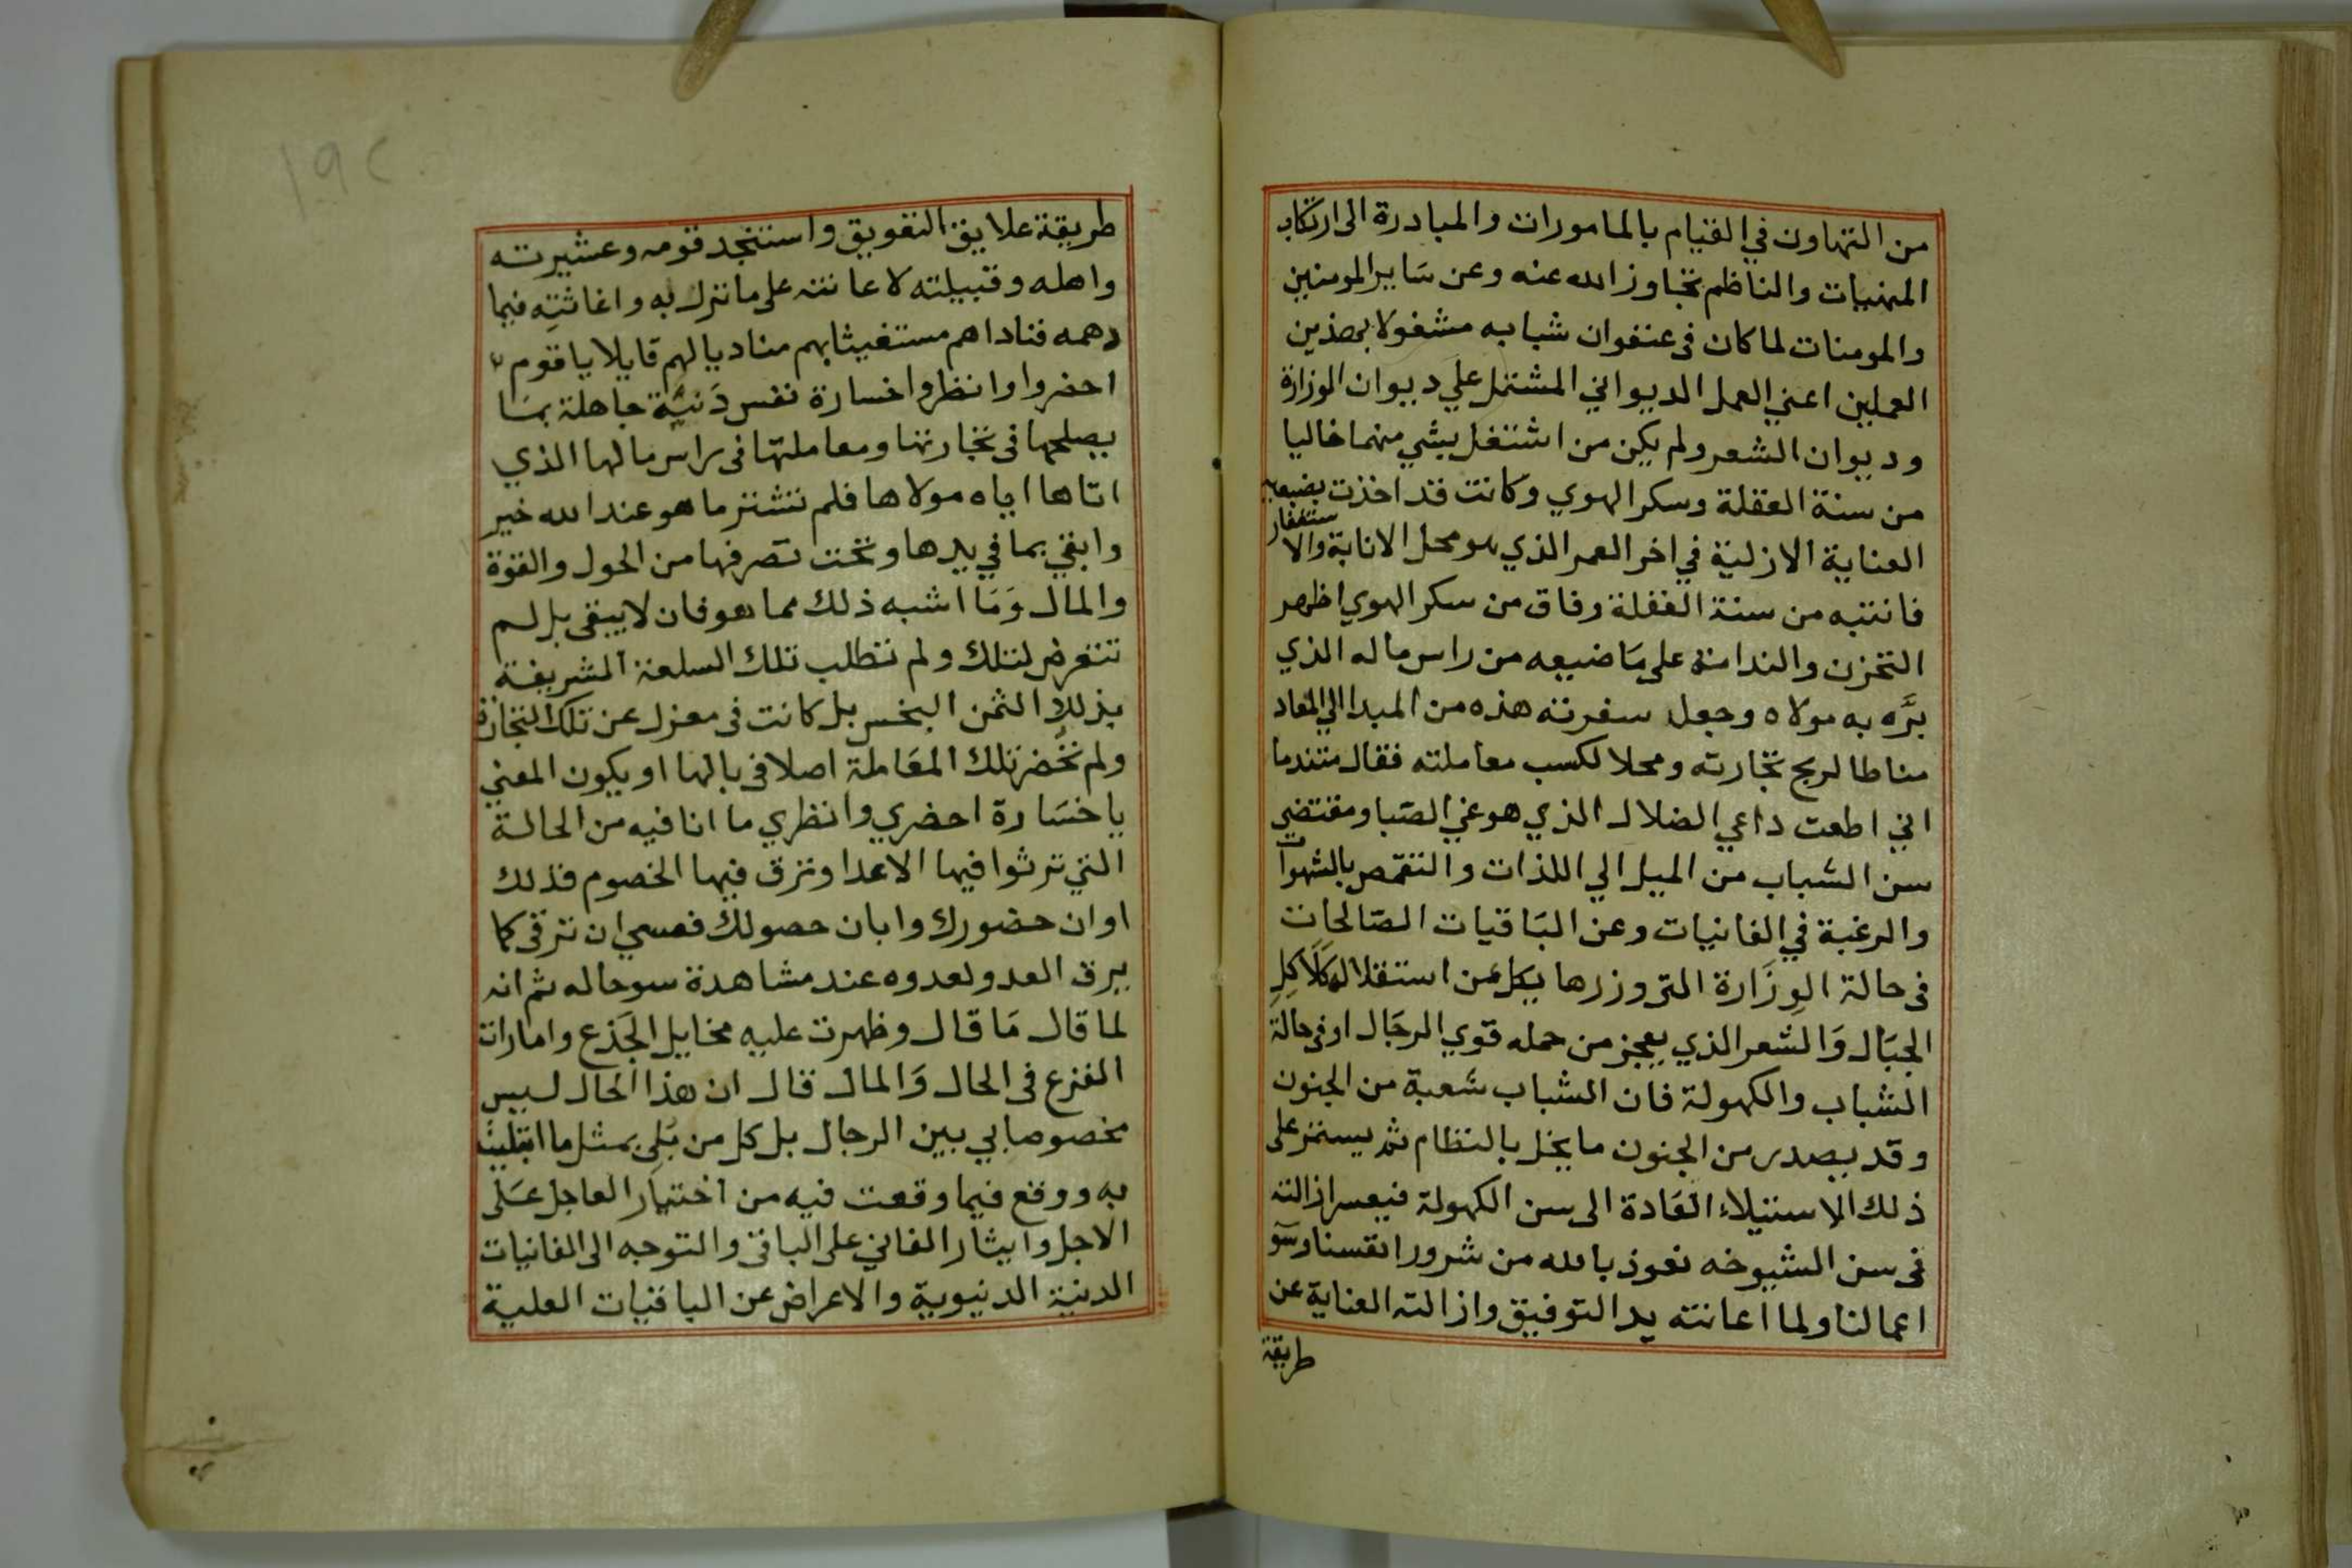 من التهاون في القيام بالمامورات والمبادرة الى ارتكاب
المنهيات والناظم تجاوز الله عنه وعن سَاير المومنين
والمومنات لما كان فى عنفوان شبابه مشغولا بهذين
العملين اعني العمل الديواني المشتمل علي ديوان الوزارة
وديوان الشعر ولم يكن من اشتغل بشي منهما خاليا
من سنة الغفلة وسكر الهوي وكانت قد اخذت بضبعيه
العناية الازلية في اخر العمر الذي هو محل الانابة والاستغفار
فانتبه من سنة الغفلة وفاق من سكر الهوي اظهر
التحزن والندامة على مَا ضيعه من راس ماله الذي
برَّه به مولاه وجعل سفرته هذه من المبدا الي المعاد
مناطا لربح تجارته ومحلا لكسب معاملته فقال متندما
اني اطعت داعي الضلال الذي هو غي الصّبا ومقتضي
سن الشباب من الميل الي اللذات والتقمص بالشهوات
والرغبة في الفانيات وعن البَاقيات الصّالحات
فى حالة الوِزَارة التى وزرها يكل عن استقلاله كَلَاكِل
الجبَال وَالشعر الذي يعجز من حمله قوي الرجَال او فى حالة
الشباب والكهولة فان الشباب شعبة من الجنون
وقد يصدر من الجنون ما يخل بالنظام ثم يستمر على
ذلك الاستيلاء العَادة الى سن الكهولة فيعسر ازالته
فى سن الشيوخه نعوذ بالله من شرور انفسنا وسوٓ
اعمالنا ولما اعانته يد التوفيق وازالته العناية عن
طريقة
١٩٢
طريقة علايق التعويق واستنجد قومه وعشيرته
واهله وقبيلته لاعانته على ما نزل به واغاثتِه فيما
دهمه فناداهم مستغيثا بهم مناديا لهم قايلا يا قوم
احضروا وانظروا خسارة نفس دَنيَّة جاهلة بمَا
يصلحها فى تجارتها ومعاملتها فى راس مالها الذي
اتاها اياه مولاها فلم تشتر ما هو عند الله خير
وابقي بما في يدها وتحت تصرفها من الحول والقوة
والمال وَمَا اشبه ذلك مما هو فان لا يبقى بل لم
تتعرض لتلك ولم تطلب تلك السلعة الشريفة
بذلك الثمن البخس بل كانت فى معزل عن تلك التجارة
ولم تحُضر تلك المعَاملة اصلا فى بالها او يكون المعني
يا خسَارة احضري وانظري ما انا فيه من الحالة
التي ترثوا فيها الاعدا وترق فيها الخصوم فذلك
اوان حضورك وابان حصولك فعسي ان ترقى كما
يرق العدو لعدوه عند مشاهدة سو حاله ثم انه
لما قال مَا قال وظهرت عليه مخايل الجَذع وامارات
الفزع فى الحال وَالمال قال ان هذا الحال ليس
مخصوصا بي بين الرجال بل كل من بُلى بمثل ما ابتليت
به ووقع فيما وقعت فيه من اختيار العاجل عَلى
الاجل وايثار الفاني على الباقى والتوجه الى الفانيات
الدنية الدنيوية والاعراض عن الباقيات العلية